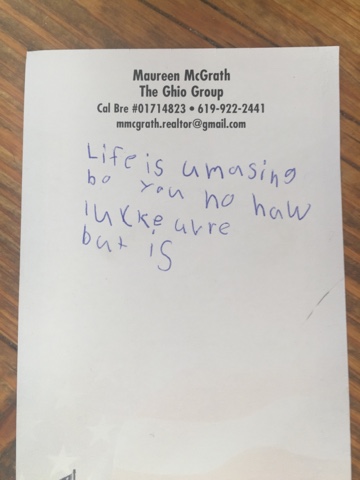 Maureen McGrath
The Ghio Group
Cal Bre #01714823 • 619-922-2441
mmcgrath.realtor@gmail.com
Life is umasing
bo you no haw
lukke uvre
but is